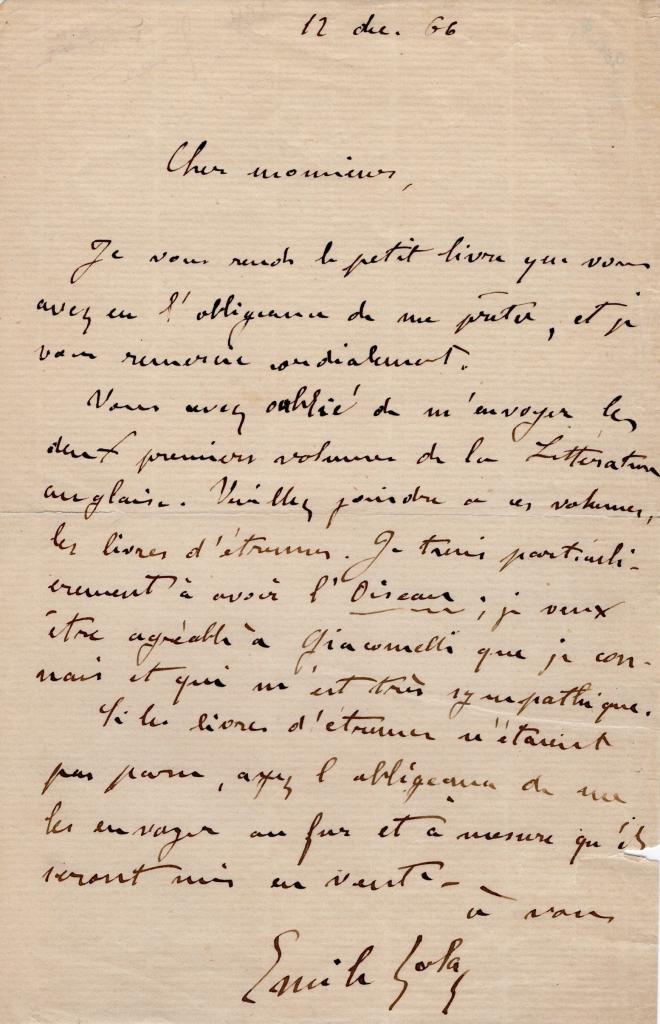 12 dec. 66
Cher monsieur,
Je vous rends le petit livre que vous
avez eu l'obligeance de me prêter, et je
vous remercie cordialement.
Vous avez oublié de m'envoyer les
deux premiers volumes de la Littérature
anglaise. Veuillez joindre à ces volumes,
les livres d'étrennes. Je tiens particuli-
èrement à avoir l'Oiseau ; je veux
être agréable à Giacomelli que je con-
nais et qui m'est très sympathique.
Si les livres d'étrennes n'étaient
pas parus, ayez l'obligeance de me
les envoyer au fur et à mesure qu'ils
seront mis en vente –
à vous
Emile Zola